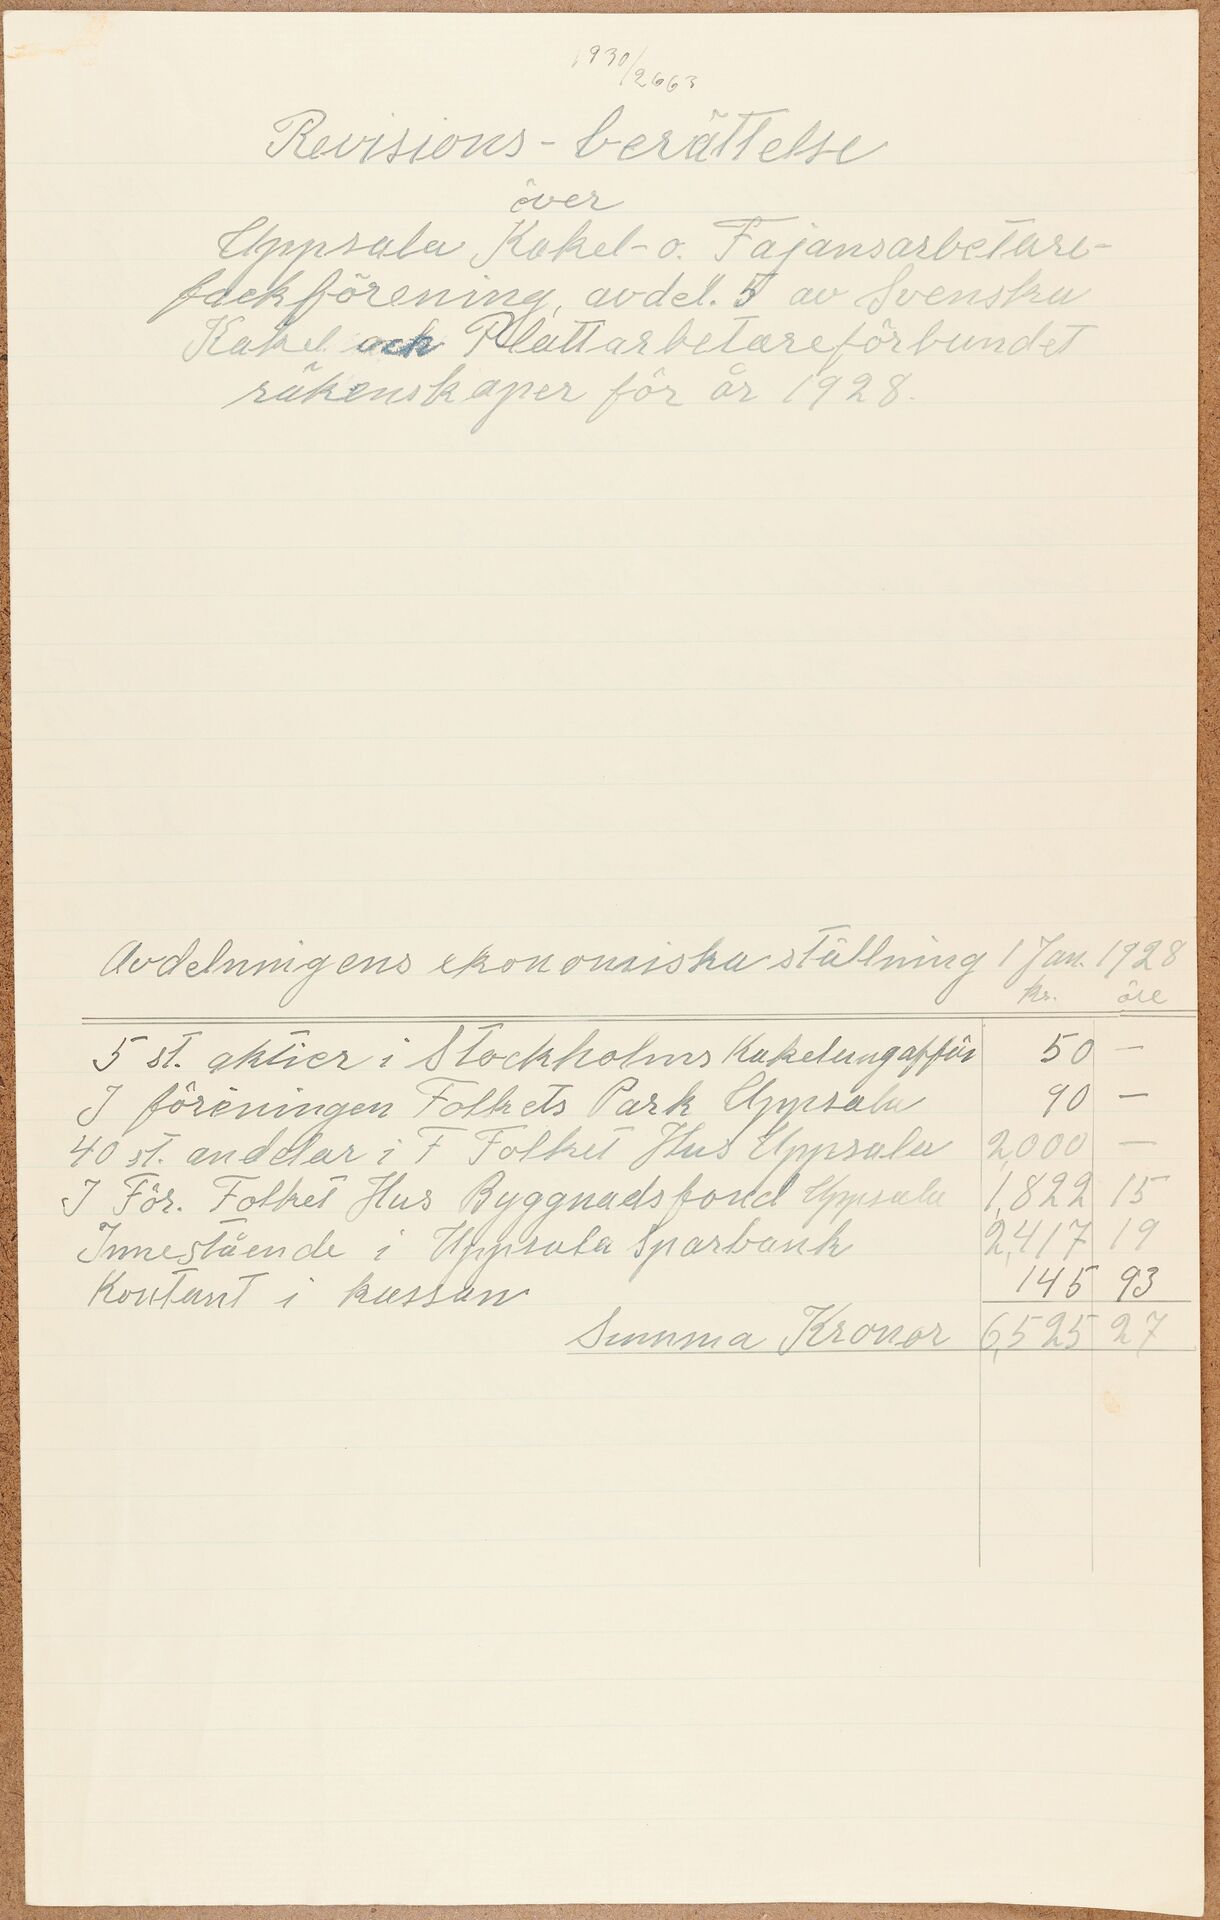 1930/2663
Revisions-berättelse
över
Uppsala Kakel- o. Fajansarbetare-
fackförening, avdel. 5 av Svenska
Kakel och Plattarbetareförbundet
räkenskaper för år 1928.
Avdelningens ekonomiska ställning 1 Jan. 1928
kr. öre
5 st. aktier i Stockholms Kakelungaffär 50 —
I föreningen Folkets Park Uppsala 90 —
40 st. andelar i F Folket Hus Uppsala 2,000 —
I För. Folket Hus Byggnadsfond Uppsala 1,822 15
Innestående i Uppsala Sparbank 2,417 19
Kontant i kassan 145 93
Summa Kronor 6,525 27